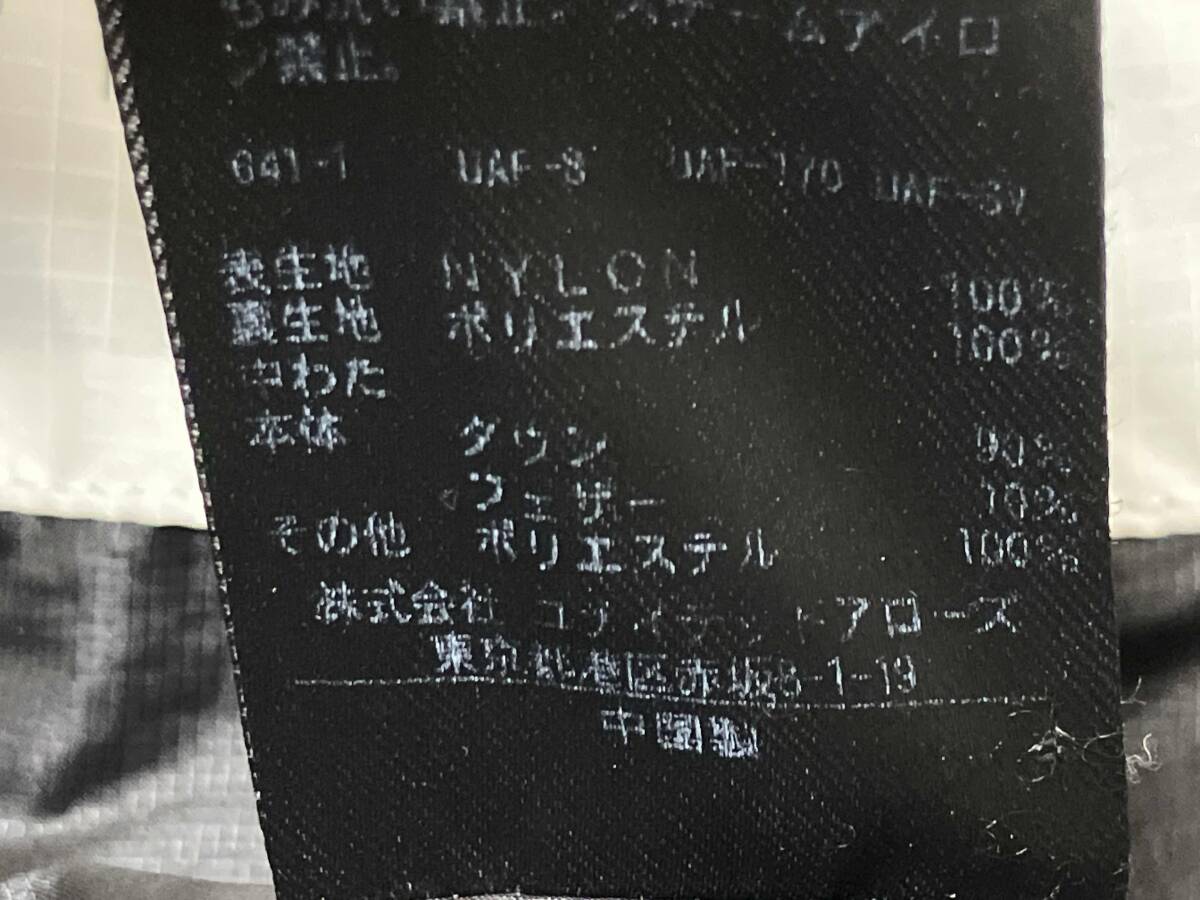 もみ洗い禁止。スチームアイロ
ン禁止。
641-1 UAF-8 UAF-170 UAF-SV
表生地 NYLON 100%
裏生地 ポリエステル 100%
中わた
本体 ダウン 90%
フェザー 10%
その他 ポリエステル 100%
株式会社 ユナイテッドアローズ
東京都港区赤坂8-1-19
中国製